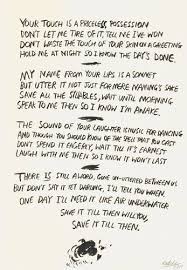 YOUR TOUCH IS A PRICELESS POSSESSION
DON'T LET ME TIRE OF IT, TELL ME I'VE WON
DON'T WASTE THE TOUCH OF YOUR SKIN ON A GREETING
HOLD ME AT NIGHT SO I KNOW THE DAY'S DONE.
MY NAME FROM YOUR LIPS IS A SONNET
BUT UTTER IT NOT JUST FOR MERE NAMING'S SAKE
SAVE ALL THE SYLLABLES, WAIT UNTIL MORNING
SPEAK TO ME THEN SO I KNOW I'M AWAKE.
THE SOUND OF YOUR LAUGHTER IS MUSIC FOR DANCING
AND THOUGH YOU SHOULD KNOW OF THE SPELL THAT YOU CAST
DON'T SPEND IT EAGERLY, WAIT TILL IT'S EARNEST
LAUGH WITH ME THEN SO I KNOW IT WON'T LAST
THERE IS STILL A WORD, GONE UN-UTTERED BETWEEN US
BUT DON'T SAY IT YET DARLING, I'LL TELL YOU WHEN
ONE DAY I'LL NEED IT LIKE AIR UNDERWATER
SAVE IT TILL THEN WILL YOU,
SAVE IT TILL THEN.